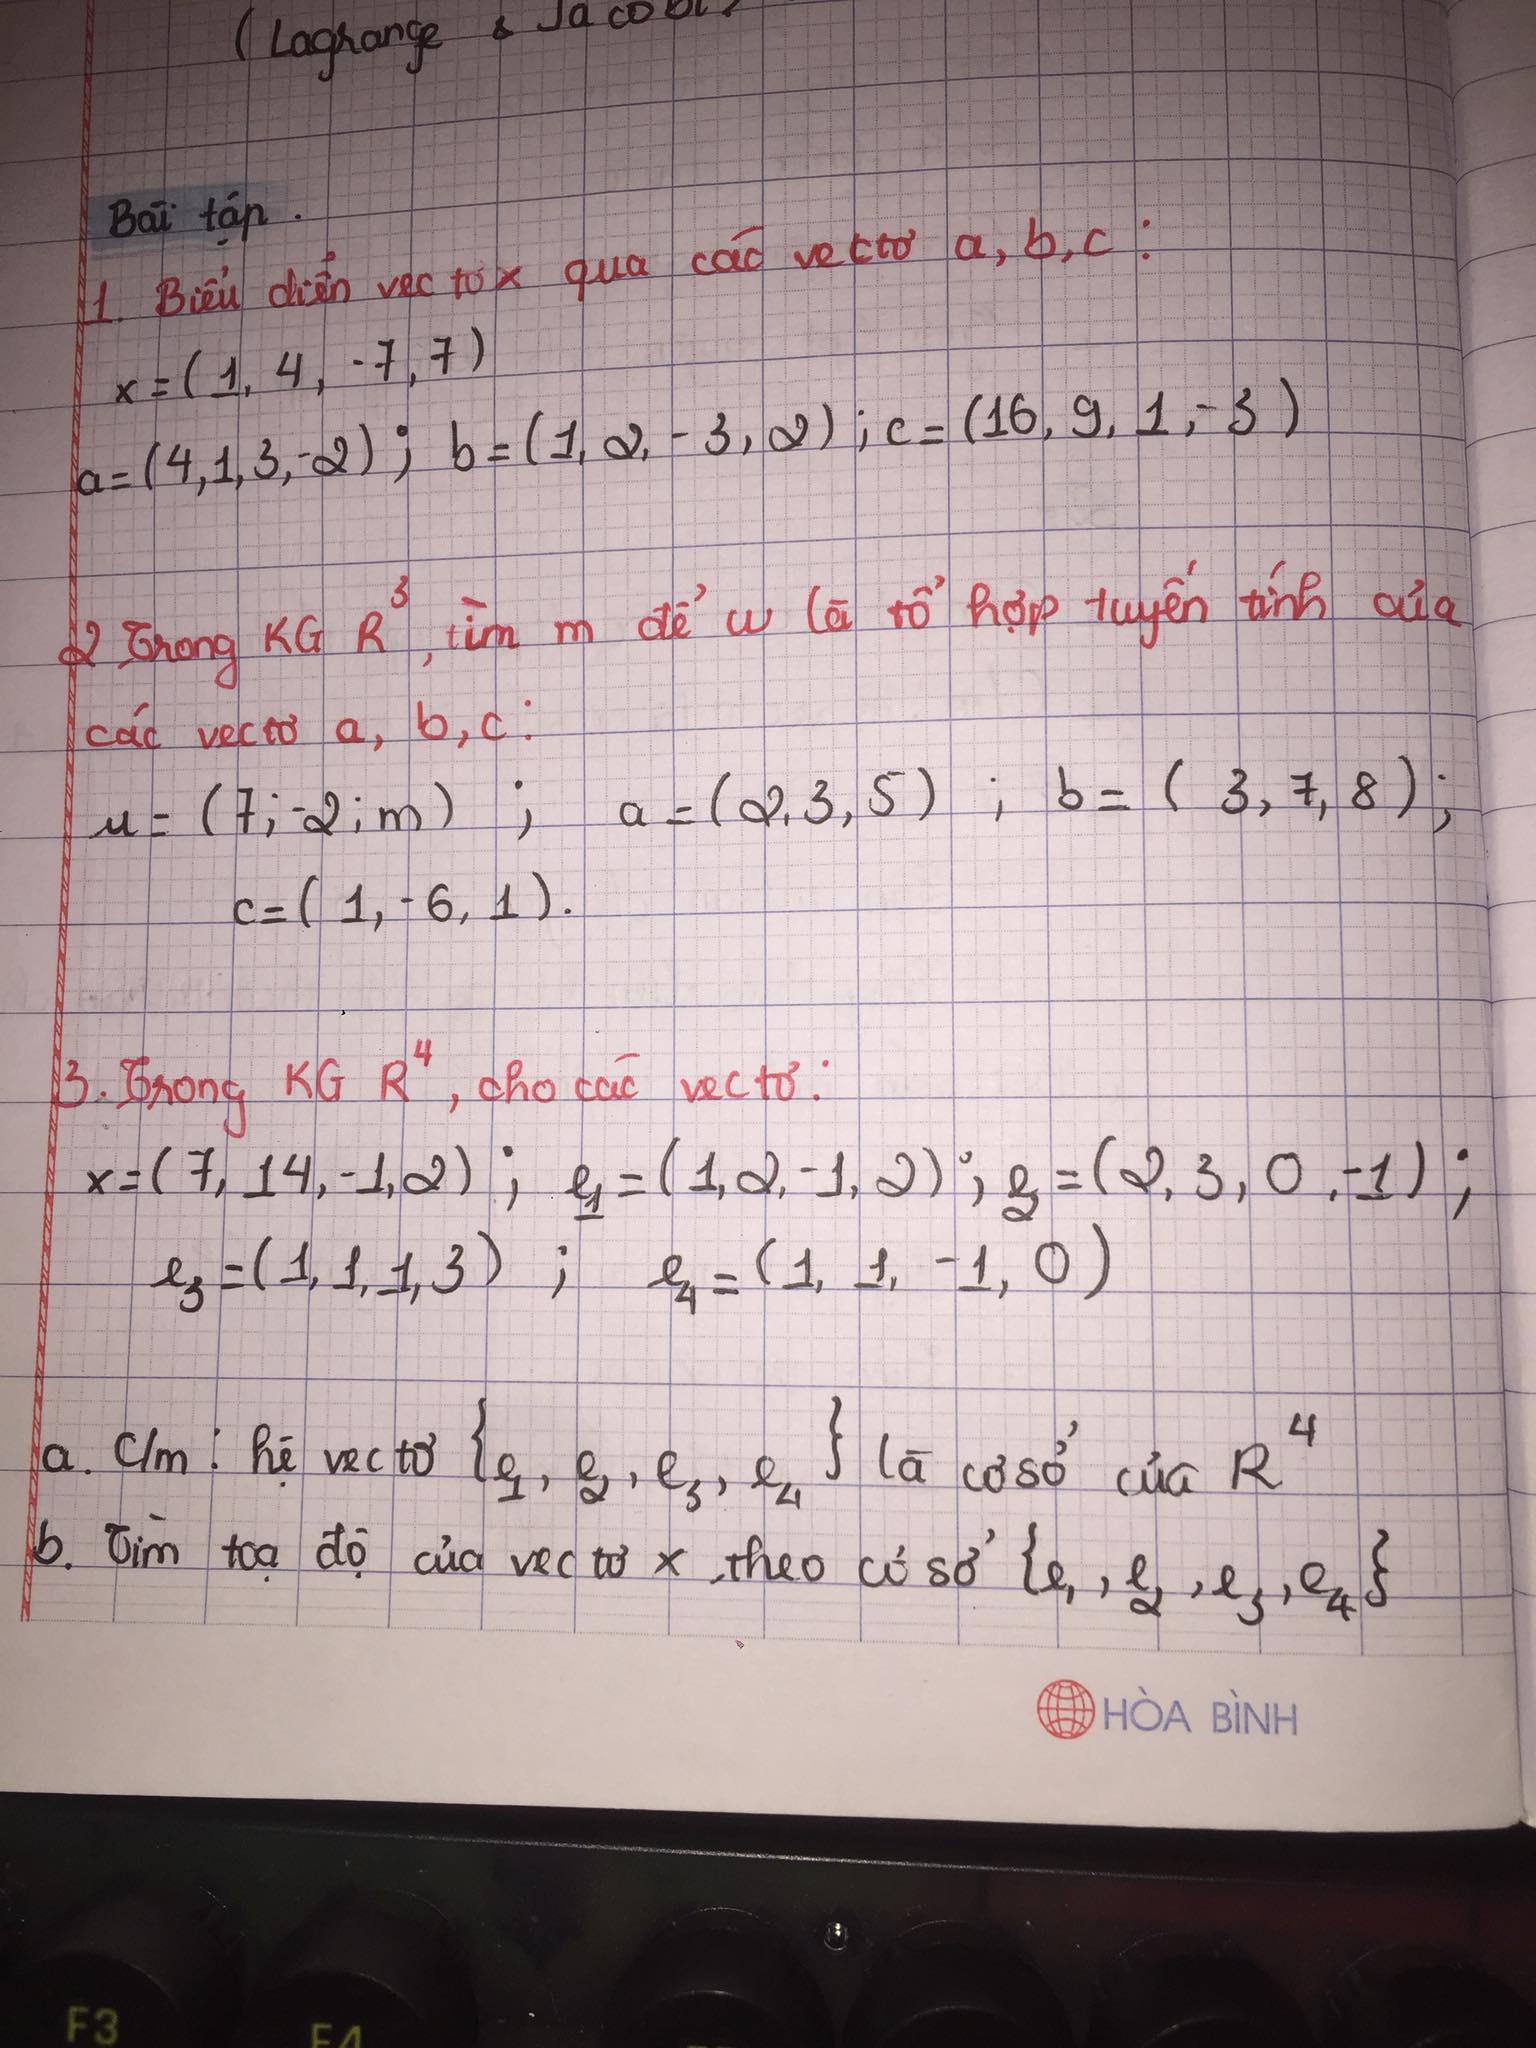 (Lagrange & Jacobi)
Bài tập.
1. Biểu diễn vectơ x qua các vectơ a, b, c :
x = ( 1, 4, -7, 7 )
a = (4, 1, 3, -2) ; b = (1, 2, -3, 2) ; c = (16, 9, 1, -3 )
2 Trong KG R³, tìm m để u là tổ hợp tuyến tính của
các vectơ a, b, c :
u = (7; -2; m) ; a = (2, 3, 5) ; b = ( 3, 7, 8 ) ;
c = ( 1, -6, 1 ).
3. Trong KG R⁴, cho các vectơ :
x = (7, 14, -1, 2) ; e₁ = (1, 2, -1, 2) ; e₂ = (2, 3, 0, -1) ;
e₃ = (1, 1, 1, 3) ; e₄ = (1, 1, -1, 0)
a. C/m : hệ vectơ {e₁, e₂, e₃, e₄} là cơ sở của R⁴
b. Tìm toạ độ của vectơ x theo cơ sở {e₁, e₂, e₃, e₄}
HÒA BÌNH
F3
F4